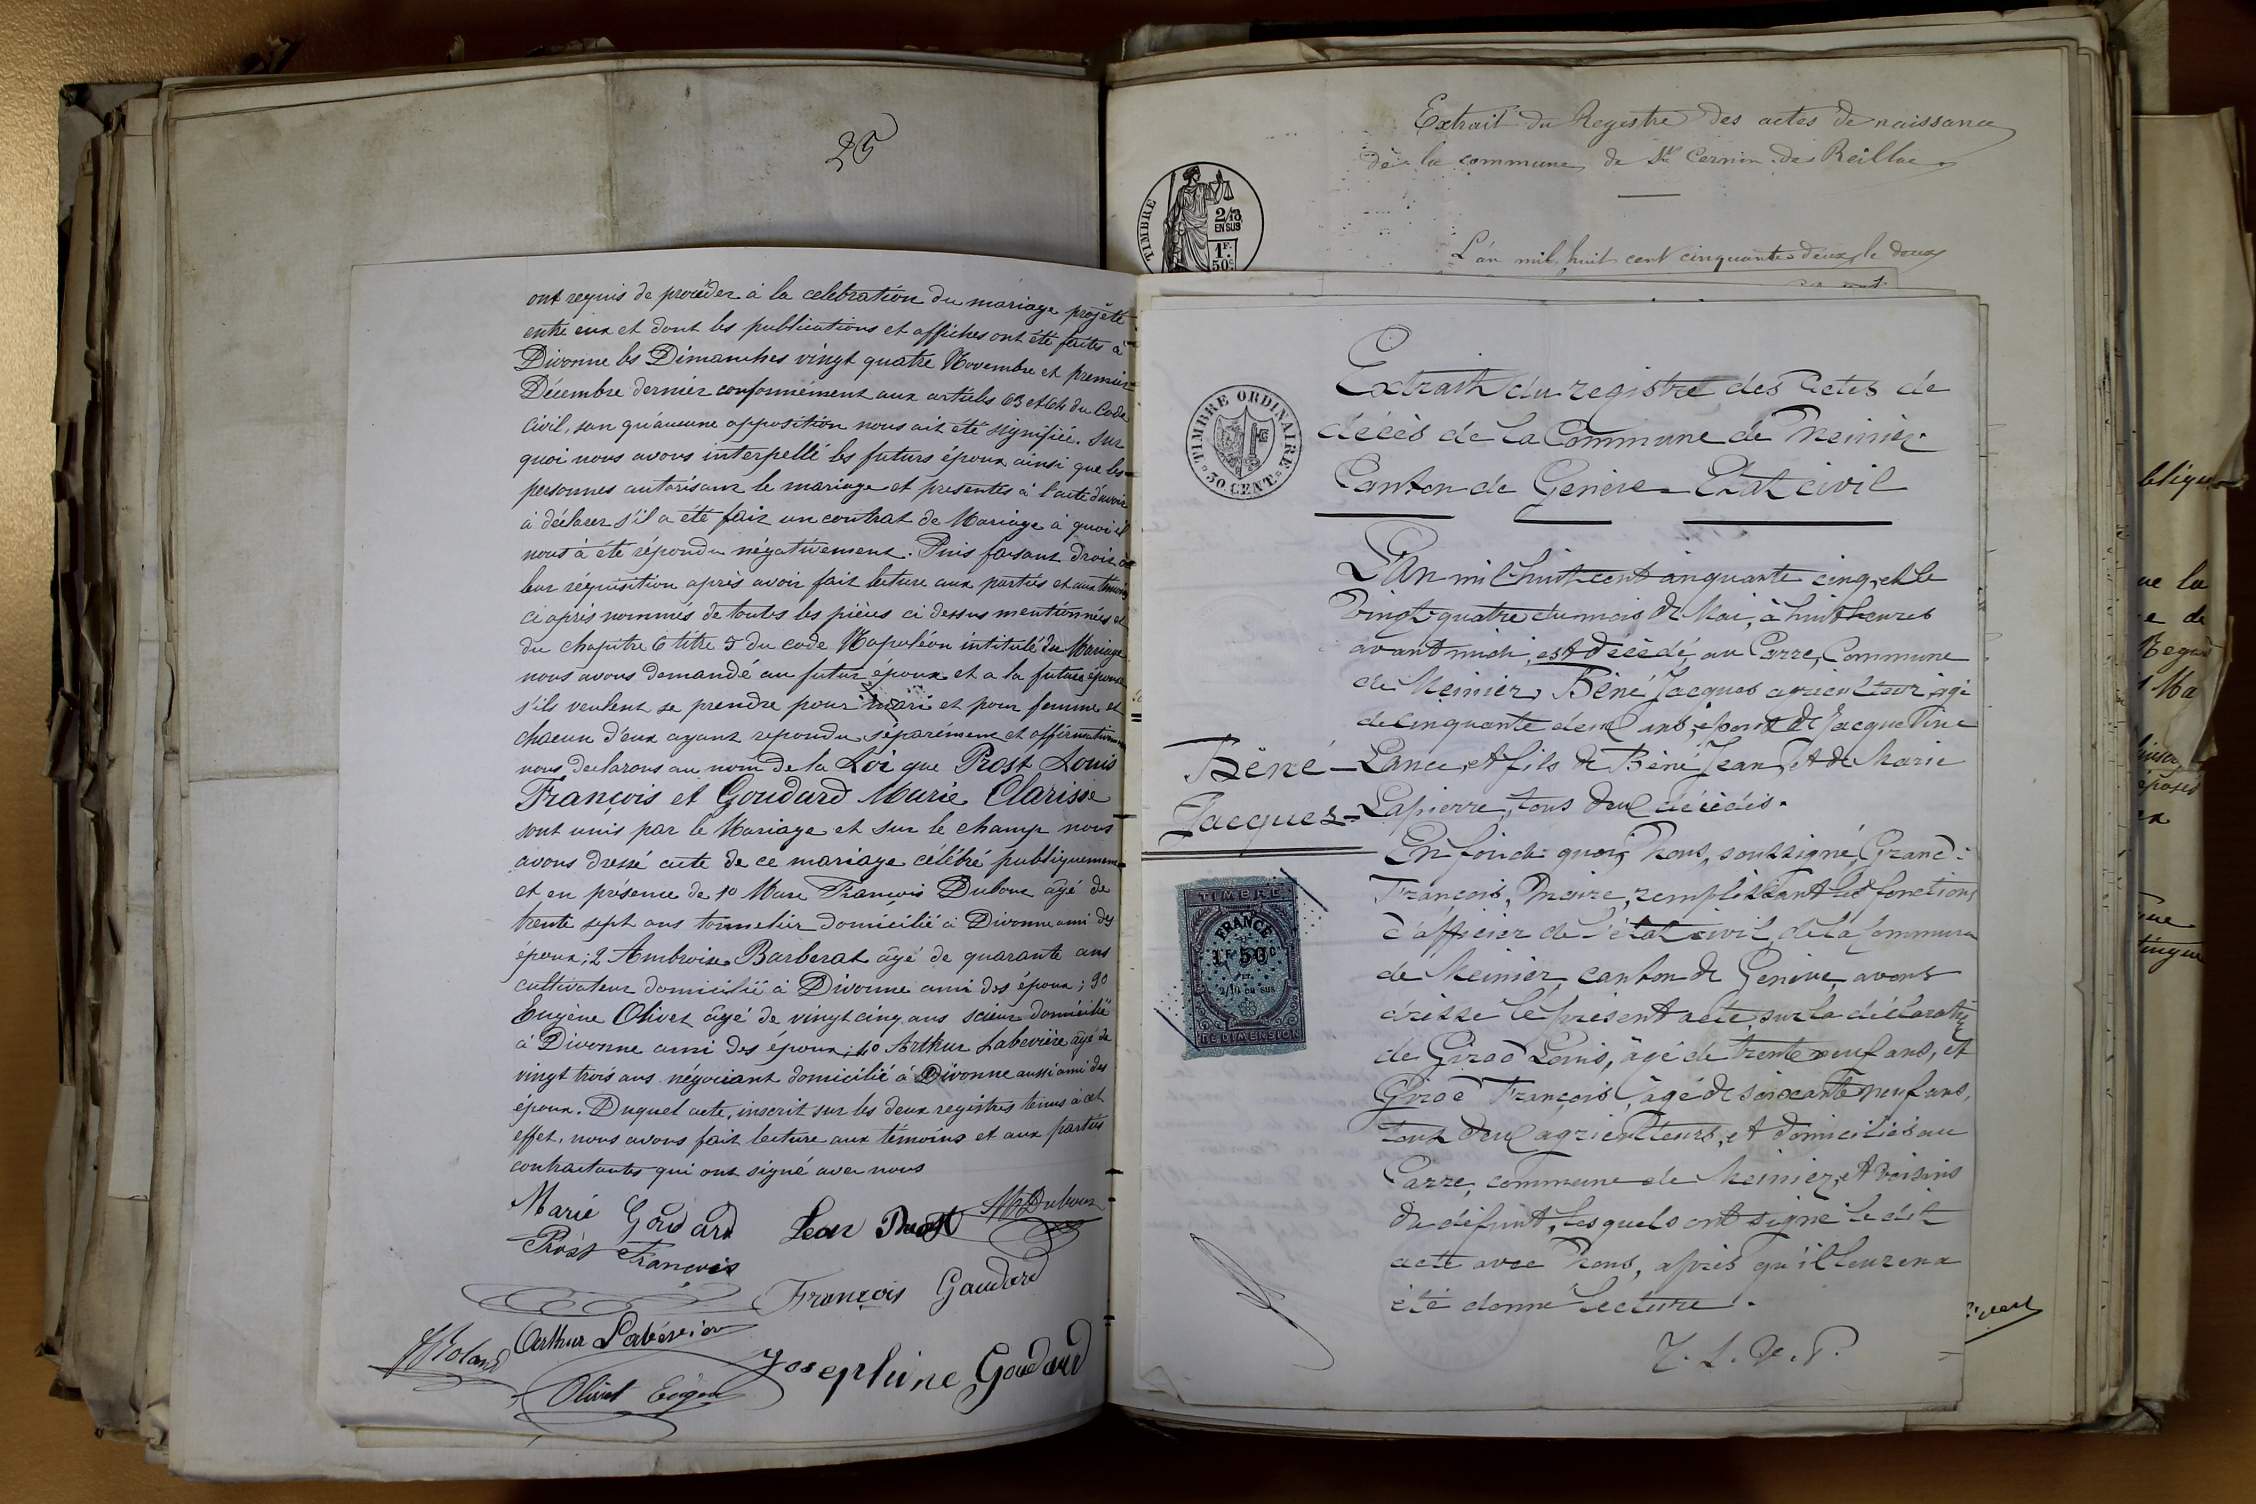 25
ont requis de procéder à la celebration du mariage projeté
entre eux et dont les publications et affiches ont été faites à
Divonne les Dimanches vingt quatre Novembre et premier
Décembre dernier conformément aux articles 63 et 64 du Code
civil, san qu'aucune opposition nous ait été signifiée. Sur
quoi nous avons interpellé les futurs époux ainsi que les
personnes autorisant le mariage et presentes à l'acte d'avoir
à déclarer s'il a été fait un contrat de Mariage à quoi il
nous à été répondu négativement. Puis faisant droit à
leur réquisition après avoir fait lecture aux parties et aux témoins
ci après nommés de toutes les pièces ci dessus mentionnées et
du chapitre 6 titre 5 du code Napoléon intitulé du Mariage
nous avons demandé au futur époux et a la future épouse
s'ils veulent se prendre pour mari et pour femme et
chacun d'eux ayant repondu séparément et affirmativement
nous declarons au nom de la Loi que Prost Louis
François et Goudard Marie Clarisse
sont unis par le Mariage et sur le champ nous
avons dressé acte de ce mariage célébré publiquement
et en présence de 1º Marc François Duboux âgé de
trente sept ans tonnelier domicilié à Divonne ami des
époux; 2 Ambroise Barberat âgé de quarante ans
cultivateur domicilié à Divonne ami des époux; 3º
Eugène Olivet âgé de vingt cinq ans scieur domicilié
à Divonne ami des époux; 4º Arthur Labevière âgé de
vingt trois ans négociant domicilié à Divonne aussi ami des
époux. Duquel acte, inscrit sur les deux registres tenus à cet
effet, nous avons fait lecture aux témoins et aux parties
contractantes qui ont signé avec nous
Marie Goudard Lean Prost M Duboux
Prost François
François Goudard
Arthur Labévière
Roland
Josephine Goudard
Olivet Eugène
Extrait du Registre des actes de naissance
de la commune de St Cernin de Reillac
TIMBRE
2/10
EN SUS
1F.
50c
L'an mil huit cent cinquante deux le douze
Extrait du registre des actes de
décès de la Commune de Meinier
Canton de Genève - Etat civil
TIMBRE ORDINAIRE
30 CENT.
L'An mil huit cent cinquante cinq, et le
vingt quatre du mois de Mai, à huit heures
avant midi, est décédé, au Carre, Commune
de Meinier, Béné Jacques agriculteur, âgé
de cinquante deux ans, époux de Jacqueline
Béné
Lance, et fils de Béné Jean, et de Marie
Jacques
Lapierre, tous deux décédés.
En foi de quoi, Nous, soussigné, Grand
François, Maire, remplissant les fonctions
d'officier de l'état civil, de la Commune
de Meinier, canton de Genève, avons
dressé le présent acte, sur la déclaration
de Girod Louis, âgé de trente neuf ans, et
Girod François, âgé de soixante neuf ans,
tous deux agriculteurs, et domiciliés au
Carre, commune de Meinier, et voisins
du défunt, lesquels ont signé le dit
acte avec Nous, après qu'il leur en a
été donné lecture.
TIMBRE
FRANCE
1F 50c
2/10 en sus
DE DIMENSION